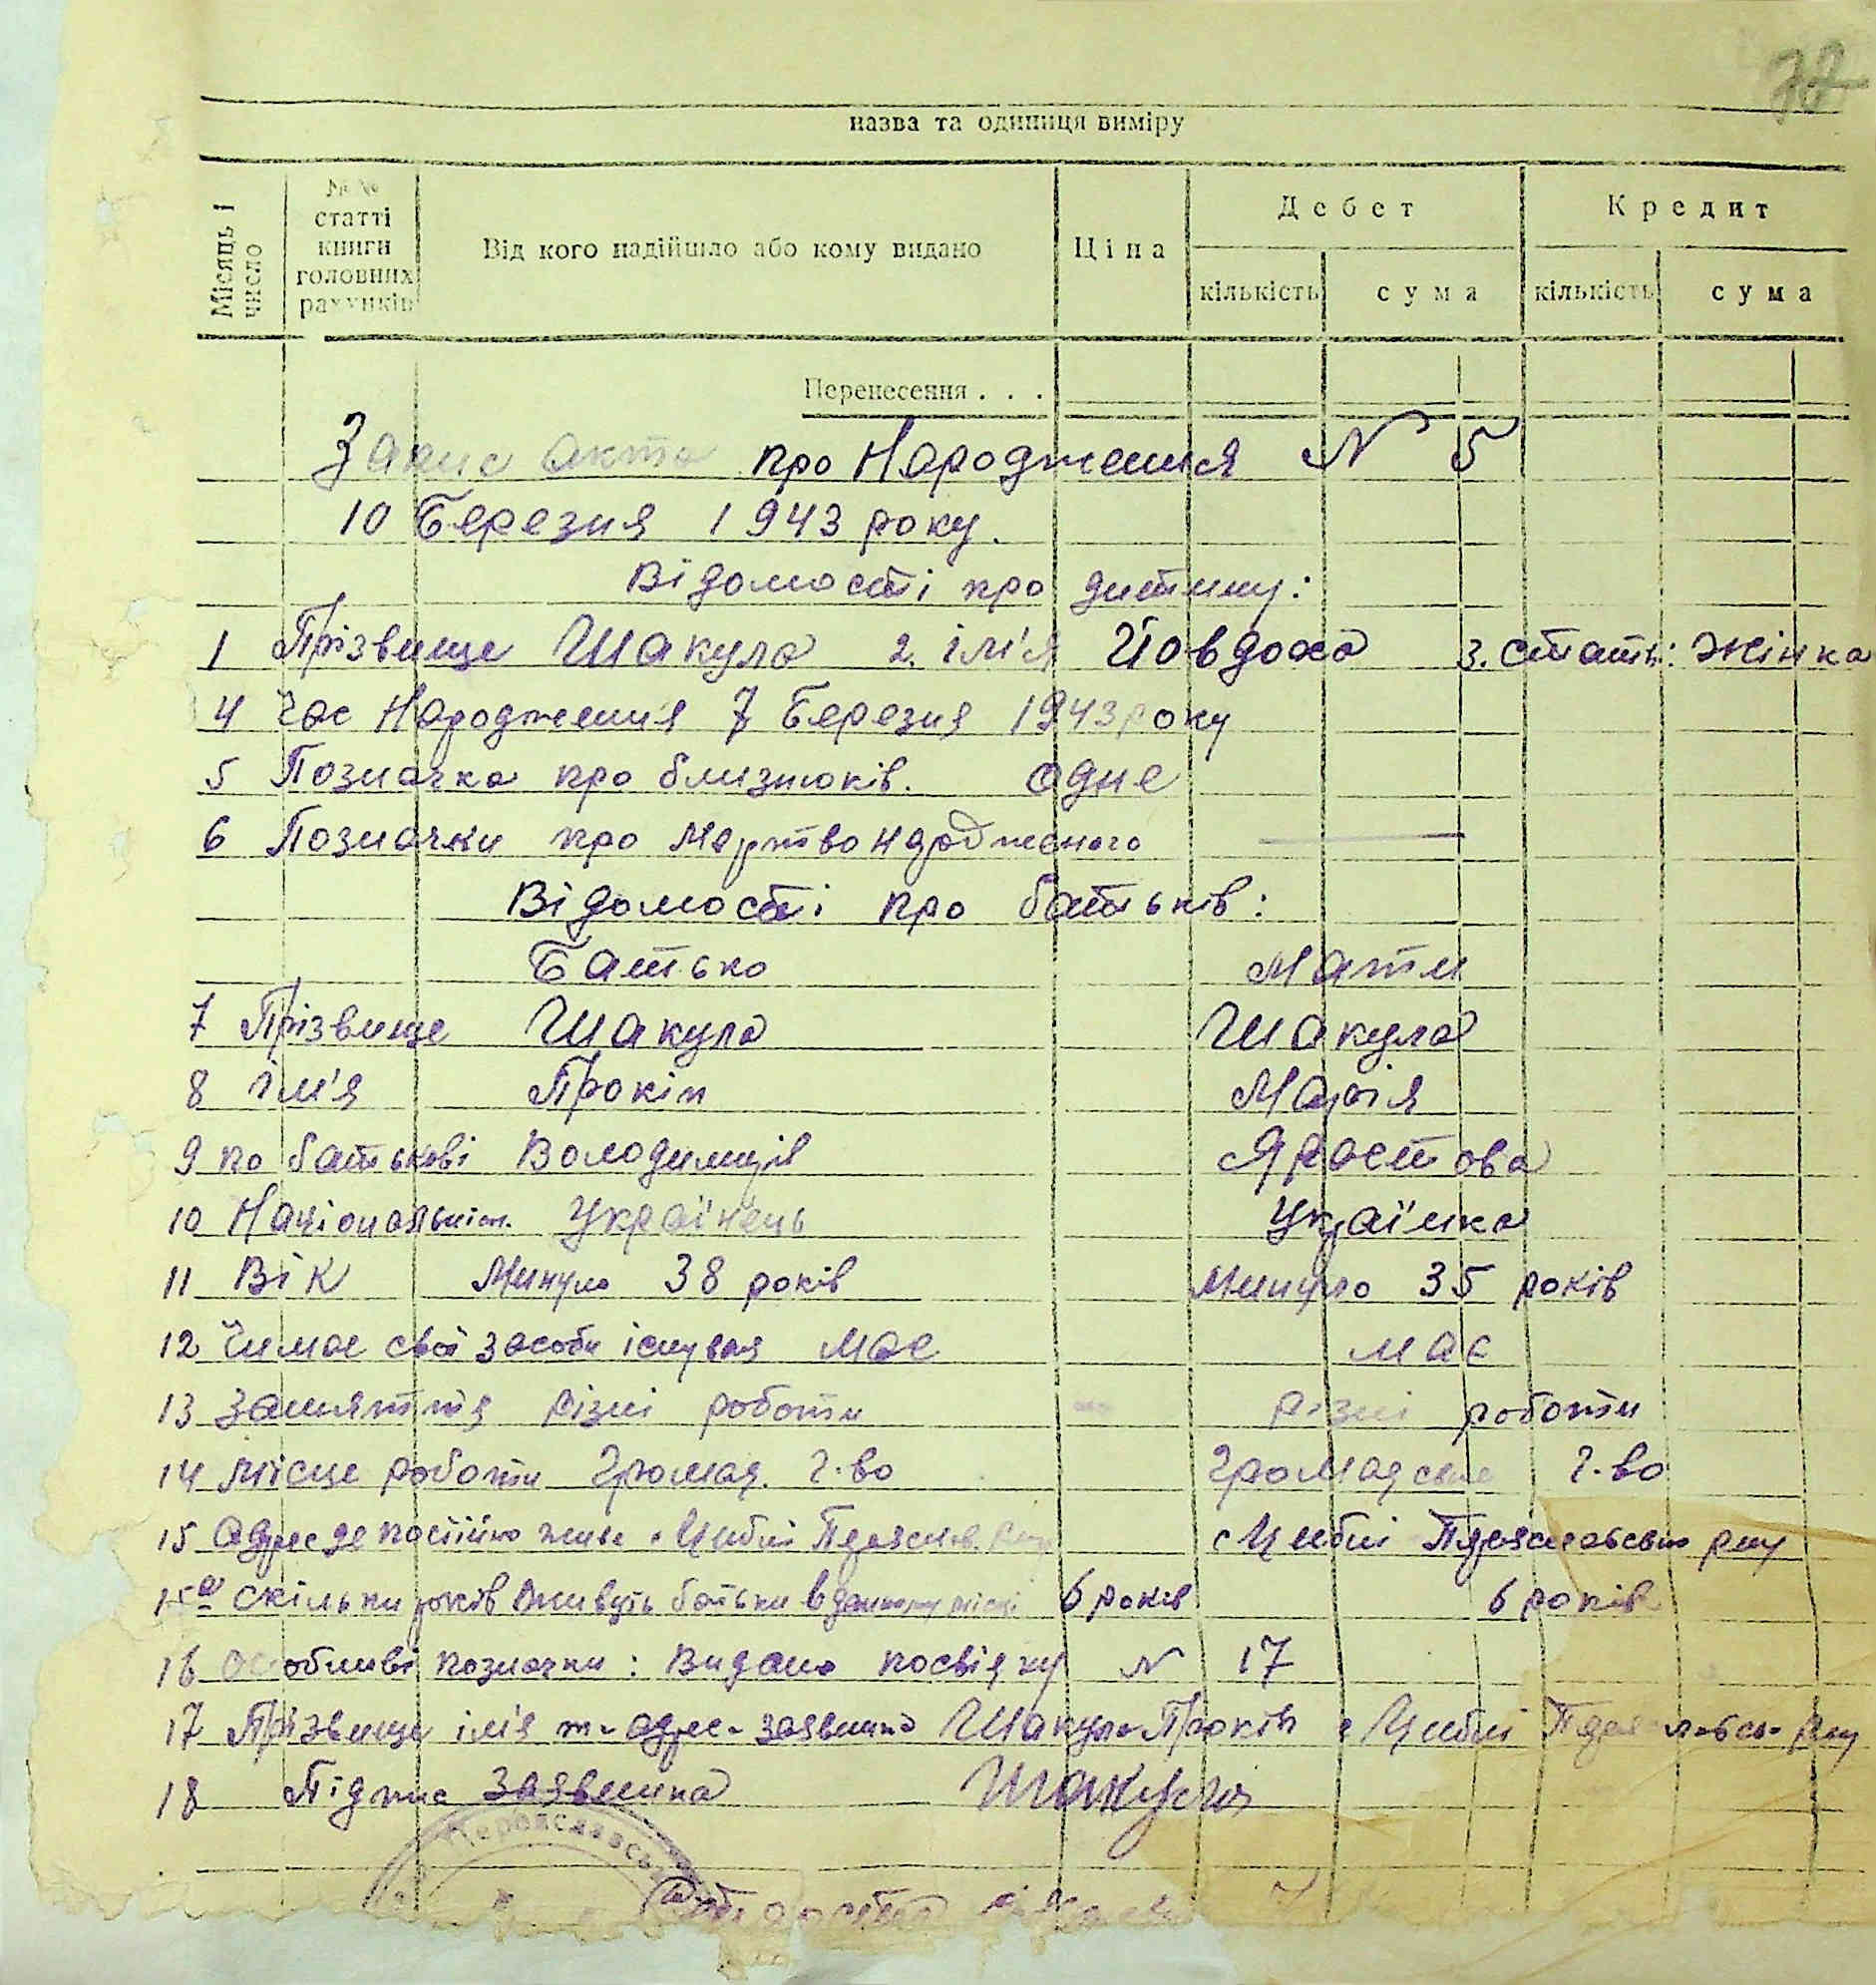 72
назва та одиниця виміру
Місяць і число
№ №
статті
книги
головних
рахунків
Від кого надійшло або кому видано
Ціна
Дебет
Кредит
кількість
сума
кількість
сума
Перенесення . . .
Запис акта про Народження N 5
10 Березня 1943 року.
Відомості про дитину:
1 Прізвище Шакула 2. ім'я Йовдоха 3. стать: Жінка
4 Час Народження 7 Березня 1943 року
5 Позначка про близнюків. Одне
6 Позначки про Мертвонародженого —
Відомості про батьків:
Батько Мати
7 Прізвище Шакула Шакула
8 ім'я Прокіп Марія
9 по батькові Володимирів
10 Національніст. Українець Українка
11 Вік Минуло 38 років Минуло 35 років
12 Чи має свої засоби існуваня має має
13 Заняття різні роботи різні роботи
14 Місце роботи Громад. г-во Громадське г-во
15 Адрес де постійно живе с Циблі с Циблі Переяславсько р-ну
15а Скільки років живуть батьки в даному місці 6 років 6 років
16 Особливі позначки: Видано посвідку N 17
17 Прізвище ім'я та адреса заявника Шакула Прокіп с Циблі р-ну
18 Підпис Заявника Шакула
Переяславсь